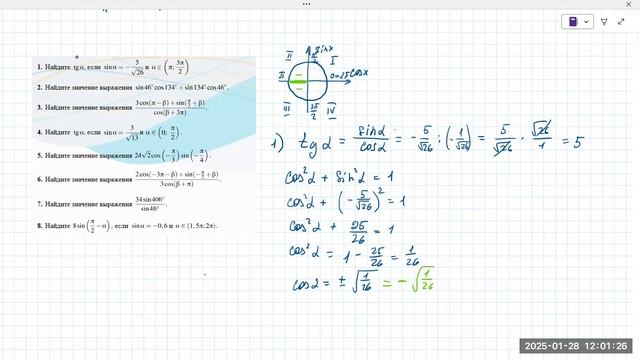 1. Найдите tgα, если sinα = −5/√26 и α ∈ (π; 3π/2)
2. Найдите значение выражения sin46° cos134° + sin134° cos46°.
3. Найдите значение выражения (3cos(π − β) + sin(π/2 + β))/cos(β + 3π).
4. Найдите tgα, если sinα = 3/√13 и α ∈ (0; π/2).
5. Найдите значение выражения 24√2 cos(−π/3) sin(−π/4).
6. Найдите значение выражения (2cos(−3π − β) + sin(−π/2 + β))/(3cos(β + π)).
7. Найдите значение выражения 34sin406°/sin46°.
8. Найдите 8sin(π/2 − α), если sinα = −0,6 и α ∈ (1,5π; 2π).
sinx
II π/2 I
π 0=2π cosx
III 3π/2 IV
1) tgα = sinα/cosα = −5/√26 : (−1/√26) = 5/√26 · √26/1 = 5
cos²α + sin²α = 1
cos²α + (−5/√26)² = 1
cos²α + 25/26 = 1
cos²α = 1 − 25/26 = 1/26
cosα = ±√(1/26) = −√(1/26)
2025-01-28 12:01:26